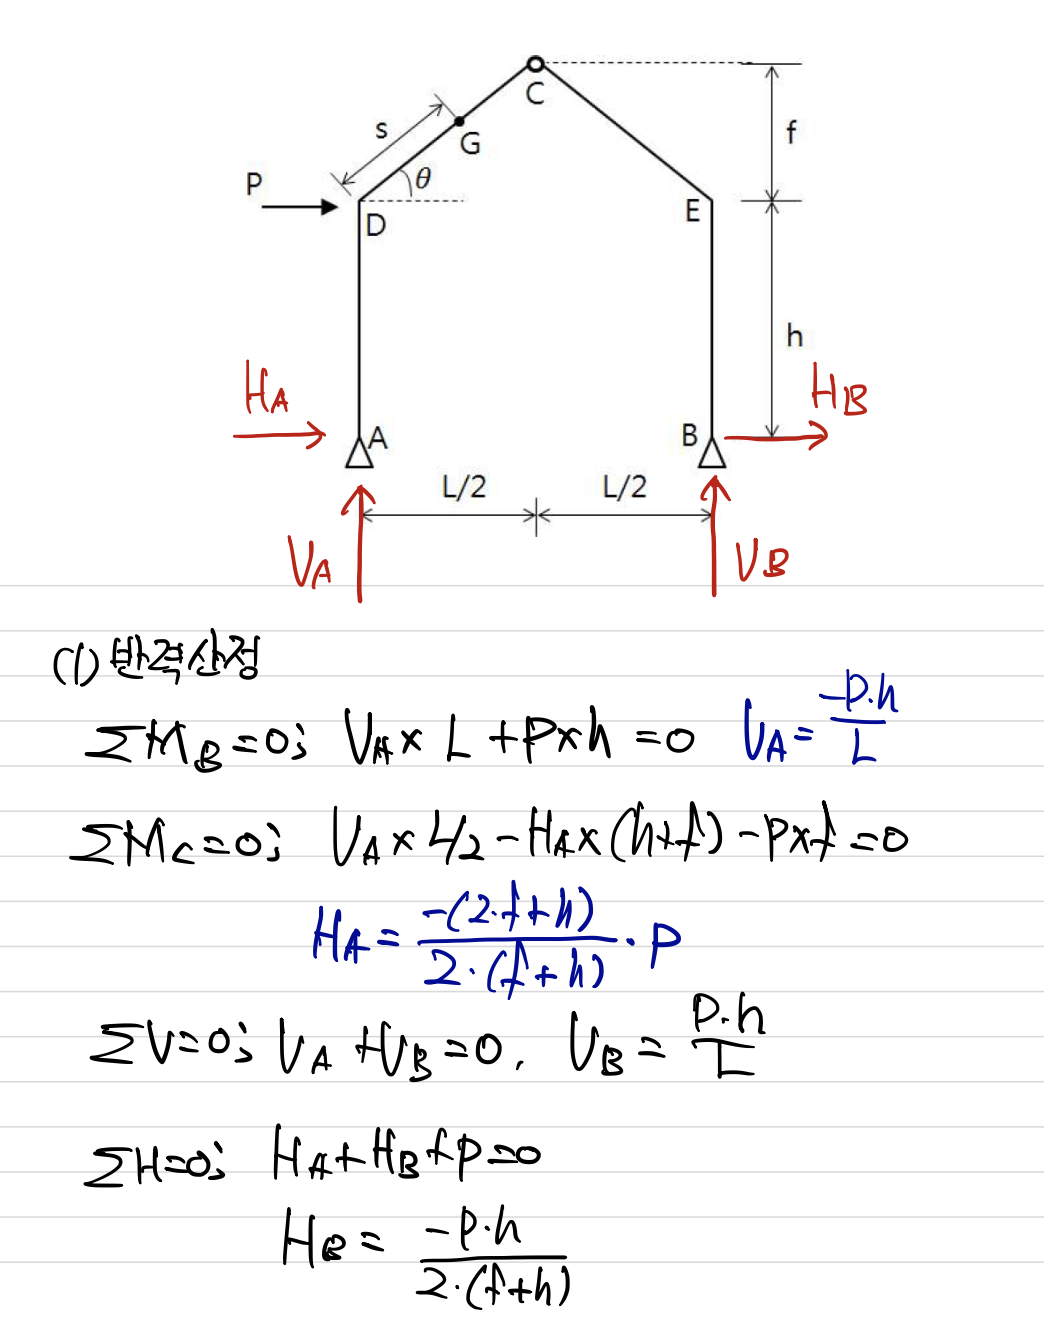 C
f
s
G
P
θ
D
E
h
H_A
H_B
A
B
L/2
L/2
V_A
V_B
(1) 반력산정
ΣM_B=0; V_A× L +P×h =0 V_A= -P.h/L
ΣM_C=0; V_A× L/2 -H_A×(h+f) -P×f =0
H_A= -(2.f+h)/2.(f+h) . P
ΣV=0; V_A +V_B=0. V_B= P.h/L
ΣH=0; H_A+H_B+P=0
H_B= -P.h/2.(f+h)